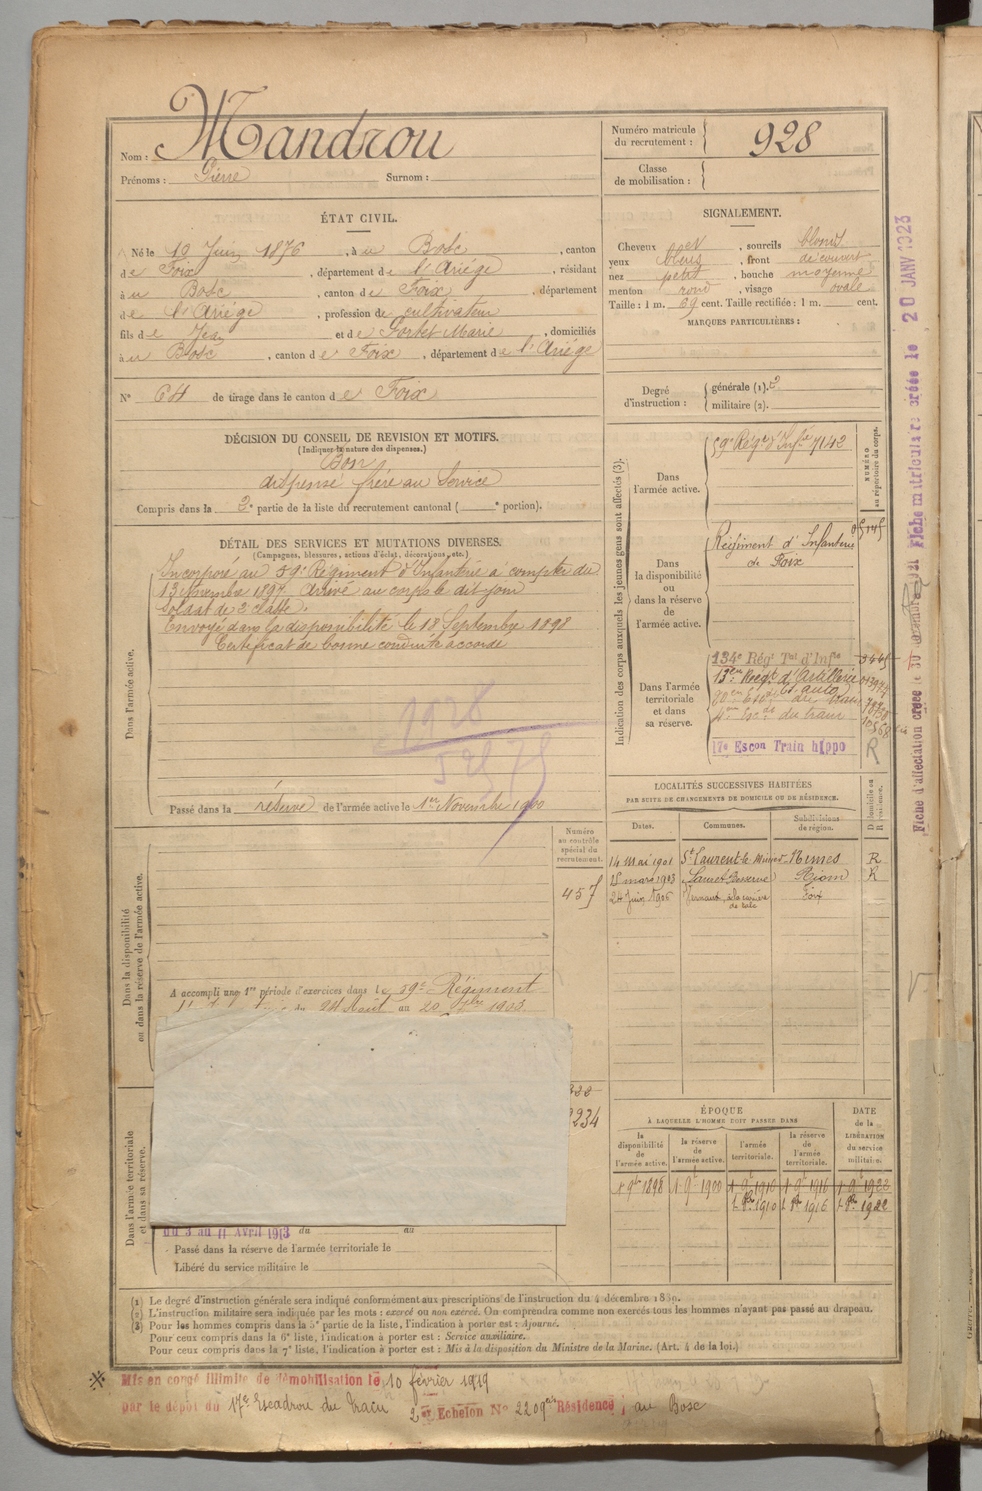 Nom : Mandrou
Prénoms : Pierre Surnom :
Numéro matricule du recrutement : 928
Classe de mobilisation :
ÉTAT CIVIL.
Né le 19 Juin 1876, à u Bosc, canton
de Foix, département de l'Ariège, résidant
à u Bosc, canton de Foix, département
de l'Ariège, profession de cultivateur
fils de Jean et de Sorbet Marie, domiciliés
à u Bosc, canton de Foix, département de l'Ariège
SIGNALEMENT.
Cheveux et, sourcils blonds
yeux bleus, front découvert
nez petit, bouche moyenne
menton rond, visage ovale
Taille : 1 m. 69 cent. Taille rectifiée : 1 m. cent.
MARQUES PARTICULIÈRES :
N° 64 de tirage dans le canton de Foix
Degré d'instruction : générale (1). 2
militaire (2).
DÉCISION DU CONSEIL DE REVISION ET MOTIFS.
(Indiquer la nature des dispenses.)
Bon
dispensé frère au Service
Compris dans la 2e partie de la liste du recrutement cantonal ( e portion).
DÉTAIL DES SERVICES ET MUTATIONS DIVERSES.
(Campagnes, blessures, actions d'éclat, décorations, etc.)
Dans l'armée active.
Incorporé au 59e Régiment d'Infanterie à compter du
13 Novembre 1897 Arrivé au corps le dit jour
Soldat de 2e classe.
Envoyé dans la disponibilité le 18 Septembre 1898
Certificat de bonne conduite accordé
Passé dans la réserve de l'armée active le 1er Novembre 1900
Indication des corps auxquels les jeunes gens sont affectés (3).
NUMÉRO au répertoire du corps.
Dans l'armée active.
59e Régt d'Infie 7142
Dans la disponibilité ou dans la réserve de l'armée active.
Régiment d'Infanterie
de Foix
Dans l'armée territoriale et dans sa réserve.
134e Régt Tal d'Infie
du train
17e Escon Train hippo R
LOCALITÉS SUCCESSIVES HABITÉES
PAR SUITE DE CHANGEMENTS DE DOMICILE OU DE RÉSIDENCE.
Dates. Communes. Subdivisions de région. D domicile ou R résidence.
14 Mai 1901 St Laurent le Minier Nîmes R
15 mars 1903 Riom R
24 Juin 1906 Foix
Dans la disponibilité ou dans la réserve de l'armée active.
Numéro au contrôle spécial du recrutement.
457
A accompli une 1re période d'exercices dans le 59e Régiment
du 24 Août au 20 7bre 1903
Dans l'armée territoriale et dans sa réserve.
234
du 3 au 11 Avril 1913 du au
Passé dans la réserve de l'armée territoriale le
Libéré du service militaire le
ÉPOQUE
À LAQUELLE L'HOMME DOIT PASSER DANS
DATE de la LIBÉRATION du service militaire.
la disponibilité de l'armée active. la réserve de l'armée active. l'armée territoriale. la réserve de l'armée territoriale.
1 9bre 1898 1 9bre 1900 1 9bre 1910 1 9bre 1916 1 9bre 1922
1 8bre 1910 1 8bre 1916 1 8bre 1922
(1) Le degré d'instruction générale sera indiqué conformément aux prescriptions de l'instruction du 4 décembre 1889.
(2) L'instruction militaire sera indiquée par les mots : exercé ou non exercé. On comprendra comme non exercés tous les hommes n'ayant pas passé au drapeau.
(3) Pour les hommes compris dans la 5e partie de la liste, l'indication à porter est : Ajourné.
Pour ceux compris dans la 6e liste, l'indication à porter est : Service auxiliaire.
Pour ceux compris dans la 7e liste, l'indication à porter est : Mis à la disposition du Ministre de la Marine. (Art. 4 de la loi.)
Mis en congé illimité de démobilisation le 10 février 1919
par le dépôt du 17e Escadron du train 2e Echelon N° 2209 Résidence : au Bosc
Fiche matriculaire créée le 20 JANV 1923